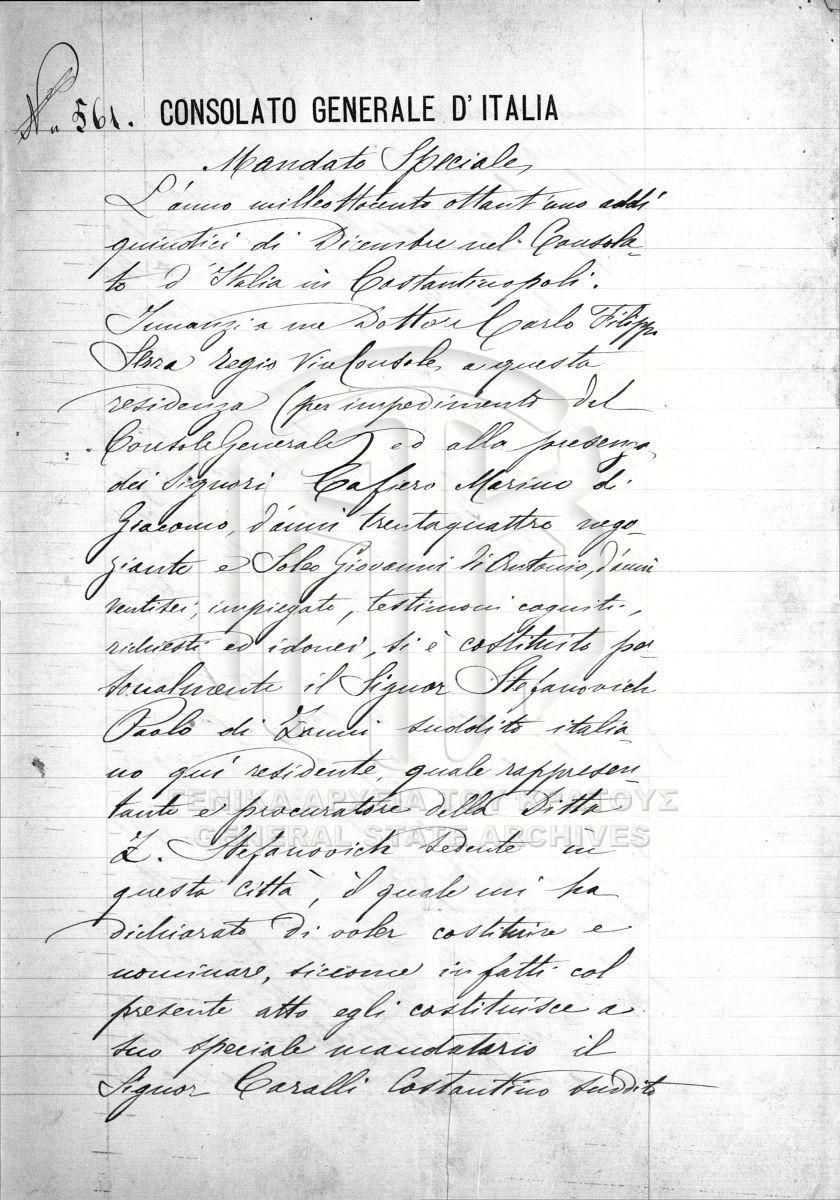 No 561. CONSOLATO GENERALE D'ITALIA
Mandato Speciale
L'anno milleottocento ottant'uno addì
quindici di Dicembre nel Consola-
to d'Italia in Costantinopoli.
Innanzi a me Dottor Carlo Filippo
Serra regio ViceConsole a questa
residenza (per impedimento del
Console Generale) ed alla presenza
dei Signori Cafiero Marino di
Giacomo, d'anni trentaquattro nego-
ziante e Soleo Giovanni di Antonio, d'anni
ventisei, impiegato, testimoni cogniti,
richiesti ed idonei, si è costituito per-
sonalmente il Signor Stefanovich
Paolo di Zanni suddito italia-
no quì residente, quale rappresen-
tante e procuratore della Ditta
ΓΕΝΙΚΑ ΑΡΧΕΙΑ ΤΟΥ ΚΡΑΤΟΥΣ
GENERAL STATE ARCHIVES
Z. Stefanovich sedente in
questa città, il quale mi ha
dichiarato di voler costituire e
nominare, siccome infatti col
presente atto egli costituisce a
suo speciale mandatario il
Signor Caralli Costantino suddito